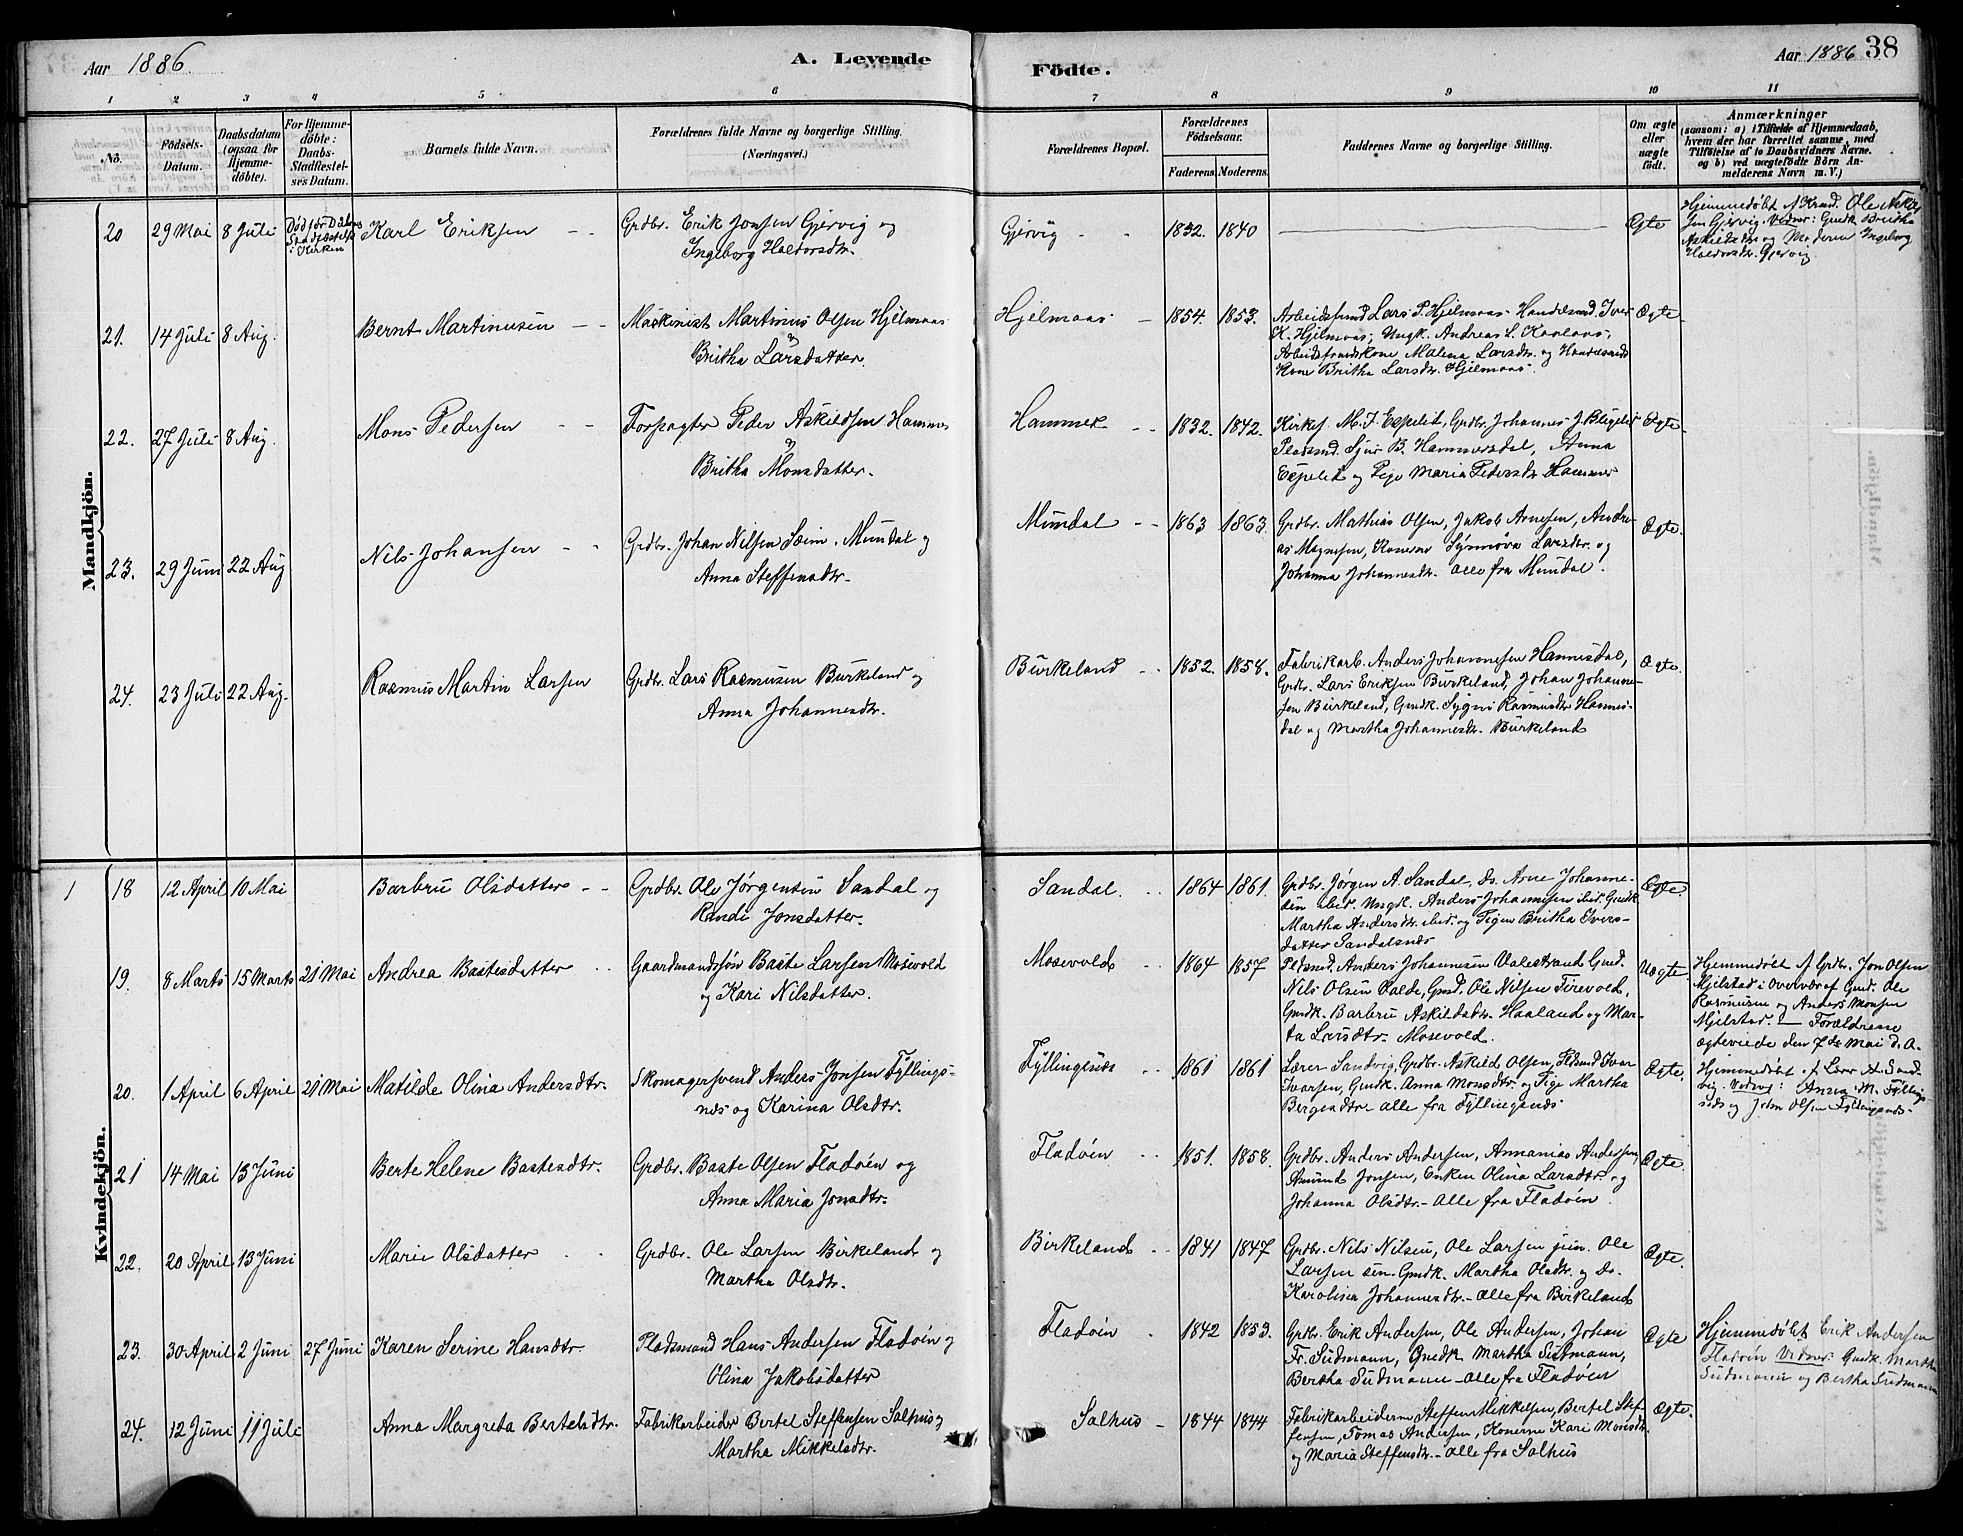 Aar 1886.
A. Levende
Födte.
Aar 1886
38
1 2 3 4 5 6 7 8 9 10 11
No.
Födsels-
Datum.
Daabsdatum
(ogsaa for
Hjemme-
döbte).
For Hjemme-
döbte:
Daabs-
Stadfæstel-
ses Datum.
Barnets fulde Navn.
Forældrenes fulde Navne og borgerlige Stilling.
(Næringsvei.)
Forældrenes Bopæl.
Forældrenes
Födselsaar.
Faderens. Moderens.
Faddernes Navne og borgerlige Stilling.
Om ægte
eller
uægte
födt.
Anmærkninger
(saasom: a) i Tilfælde af Hjemmedaab,
hvem der har forrettet samme, med
Tilföielse af to Daabsvidners Navne.
og b) ved uægtefödte Börn An-
melderens Navn m. V.)
Mandkjön.
20 29 Mai 8 Juli
Død før Daabens
Stadfæstelse
i Kirken
Karl Eriksen
Grdbr. Erik Jonsen Gjervig og
Ingeborg Haldorsdtr.
Gjervig
1832. 1840
Ægte
Hjemmedøbt af Ole
sen Gjervig. Vidner: Gmdk. Britha
Askildsdtr og Moderen Ingeborg
Haldorsdtr. Gjervig.
21. 14 Juli 8 Aug.
Bernt Martinusen
Maskinist Martinus Olsen Hjelmaas
og
Britha Larsdatter.
Hjelmaas
1854. 1853.
Arbeidsfmd Lars P. Hjelmaas Handelsmd. Iver
K. Hjelmaas, Ungk. Andreas L.
Arbeidsfmandskone Malena Larsdtr. og Handelsmands
Kone Britha Larsdtr. Hjelmaas.
Ægte
22. 27 Juli 8 Aug.
Mons Pedersen
Forpagter Peder Askildsen Hammer
og
Britha Monsdatter.
Hammer
1832. 1842.
Kirkes. M. J. Espelid, Grdbr. Johannes J.
Pladsmd. Sjur B. Hammersdal, Anna
Espelid og Pige Maria Pedersdtr Hammer
Ægte
23. 29 Juni 22 Aug
Nils Johansen
Grdbr. Johan Nilsen Sæim, Mundal og
Anna Steffensdtr.
Mundal
1863 1863.
Grdbr. Mathias Olsen, Jakob Arnesen, Andre-
as Magnesen, Konerne Synnøva Larsdtr. og
Johanna Johannesdtr. alle fra Mundal.
Ægte.
24. 23 Juli 22 Aug.
Rasmus Martin Larsen
Grdbr. Lars Rasmusen Burkeland og
Anna Johannesdtr.
Burkeland
1852. 1858.
Fabrikarb. Anders Johannesen Hannisdal,
Grdbr. Lars Eriksen Burkeland, Johan Johanne-
sen Burkeland, Gmdk. Sygni Rasmusdtr Hannis-
dal og Martha Johannesdtr. Burkeland
Ægte.
Kvindekjön.
1
18 12 April 10 Mai
Barbru Olsdatter
Grdbr. Ole Jørgensen Sandal og
Randi Jonsdatter.
Sandal.
1864 1861.
Grdbr. Jørgen A. Sandal, Ds. Arne Johanne-
sen ibid. Ungk. Anders Johannesen ibid. Gmdk
Martha Andersdtr. ibid. og Pigen Britha Ivers-
datter Sandalsnæs
Ægte.
19. 8 Marts 15 Marts 21 Mai
Andrea Bastesdatter
Gaardmandssøn Baste Larsen Mosevold
og Kari Nilsdatter.
Mosevold
1864 1857
Pldsmd. Anders Johannesen Valestrand Gmd.
Nils Olsen Valde, Gmd. Ole Nilsen Tirevold,
Gmdk. Barbru Askildsdtr. Haaland og Mar-
ta Larsdtr. Mosevold.
Uægte
Hjemmedøbt af Grdbr. Jon Olsen
Mjelstad i Overvær af Gmd. Ole
Rasmusen og Anders Monsen
Mjelstad. — Forældrene
ægteviede den 7de Mai D. A.
20. 1 April 6 April 21 Mai
Matilde Olina Andersdtr.
Skomagersvend Anders Jonsen Fyllings-
næs og Karina Olsdtr.
Fyllingsnæs
1861 1861
Lærer Sandvig, Grdbr. Askild Olsen, Pldsmd Ivar
Ivarsen, Gmdk. Anna Monsdtr. og Pige Martha
Bergesdtr alle fra Fyllingsnæs
Ægte.
Hjemmedøbt af Lærer A. Sand-
vig. Vidner: Anna M. Fyllings-
næs og John Olsen Fyllingsnæs.
21 14 Mai 13 Juni
Berte Helene Bastesdtr.
Grdbr. Baste Olsen Fladøen og
Anna Maria Jonsdtr.
Fladøen
1851. 1858.
Grdbr. Anders Andersen, Annanias Andersen,
Amund Jonsen, Enken Olina Larsdtr. og
Johanna Olsdtr. – Alle fra Fladøen.
Ægte.
22. 20 April 13 Juni
Marie Olsdatter
Grdbr. Ole Larsen Birkeland og
Martha Olsdtr.
Birkeland
1841 1847
Grdbr. Nils Nilsen, Ole Larsen jun. Ole
Larsen sen. Gmdk. Martha Olsdtr. og Ds.
Karolina Johannesdtr. – Alle fra Birkeland
Ægte.
23. 30 April 2 Juni 27 Juni
Karen Serine Hansdtr.
Pladsmand Hans Andersen Fladøen og
Olina Jakobsdatter
Fladøen
1842 1853.
Grdbr. Erik Andersen, Ole Andersen, Johan
Fr. Sudmann, Gmdk Martha Sudmann,
Bertha Sudmann – Alle fra Fladøen
Ægte
Hjemmedøbt Erik Andersen
Fladøen Vidner: Gmdk. Martha
Sudmann og Bertha Sudmann
24. 12 Juni 11 Juli
Anna Margreta Bertelsdtr.
Fabrikarbeider Bertel Steffensen Salhus og
Martha Mikkelsdtr.
Salhus
1844 1844
Fabrikarbeiderne Steffen Mikkelsen, Bertel Stef-
fensen, Tomas Andersen, Konerne Kari Monsdtr.
og Maria Steffensdtr. – Alle fra Salhus
Ægte.